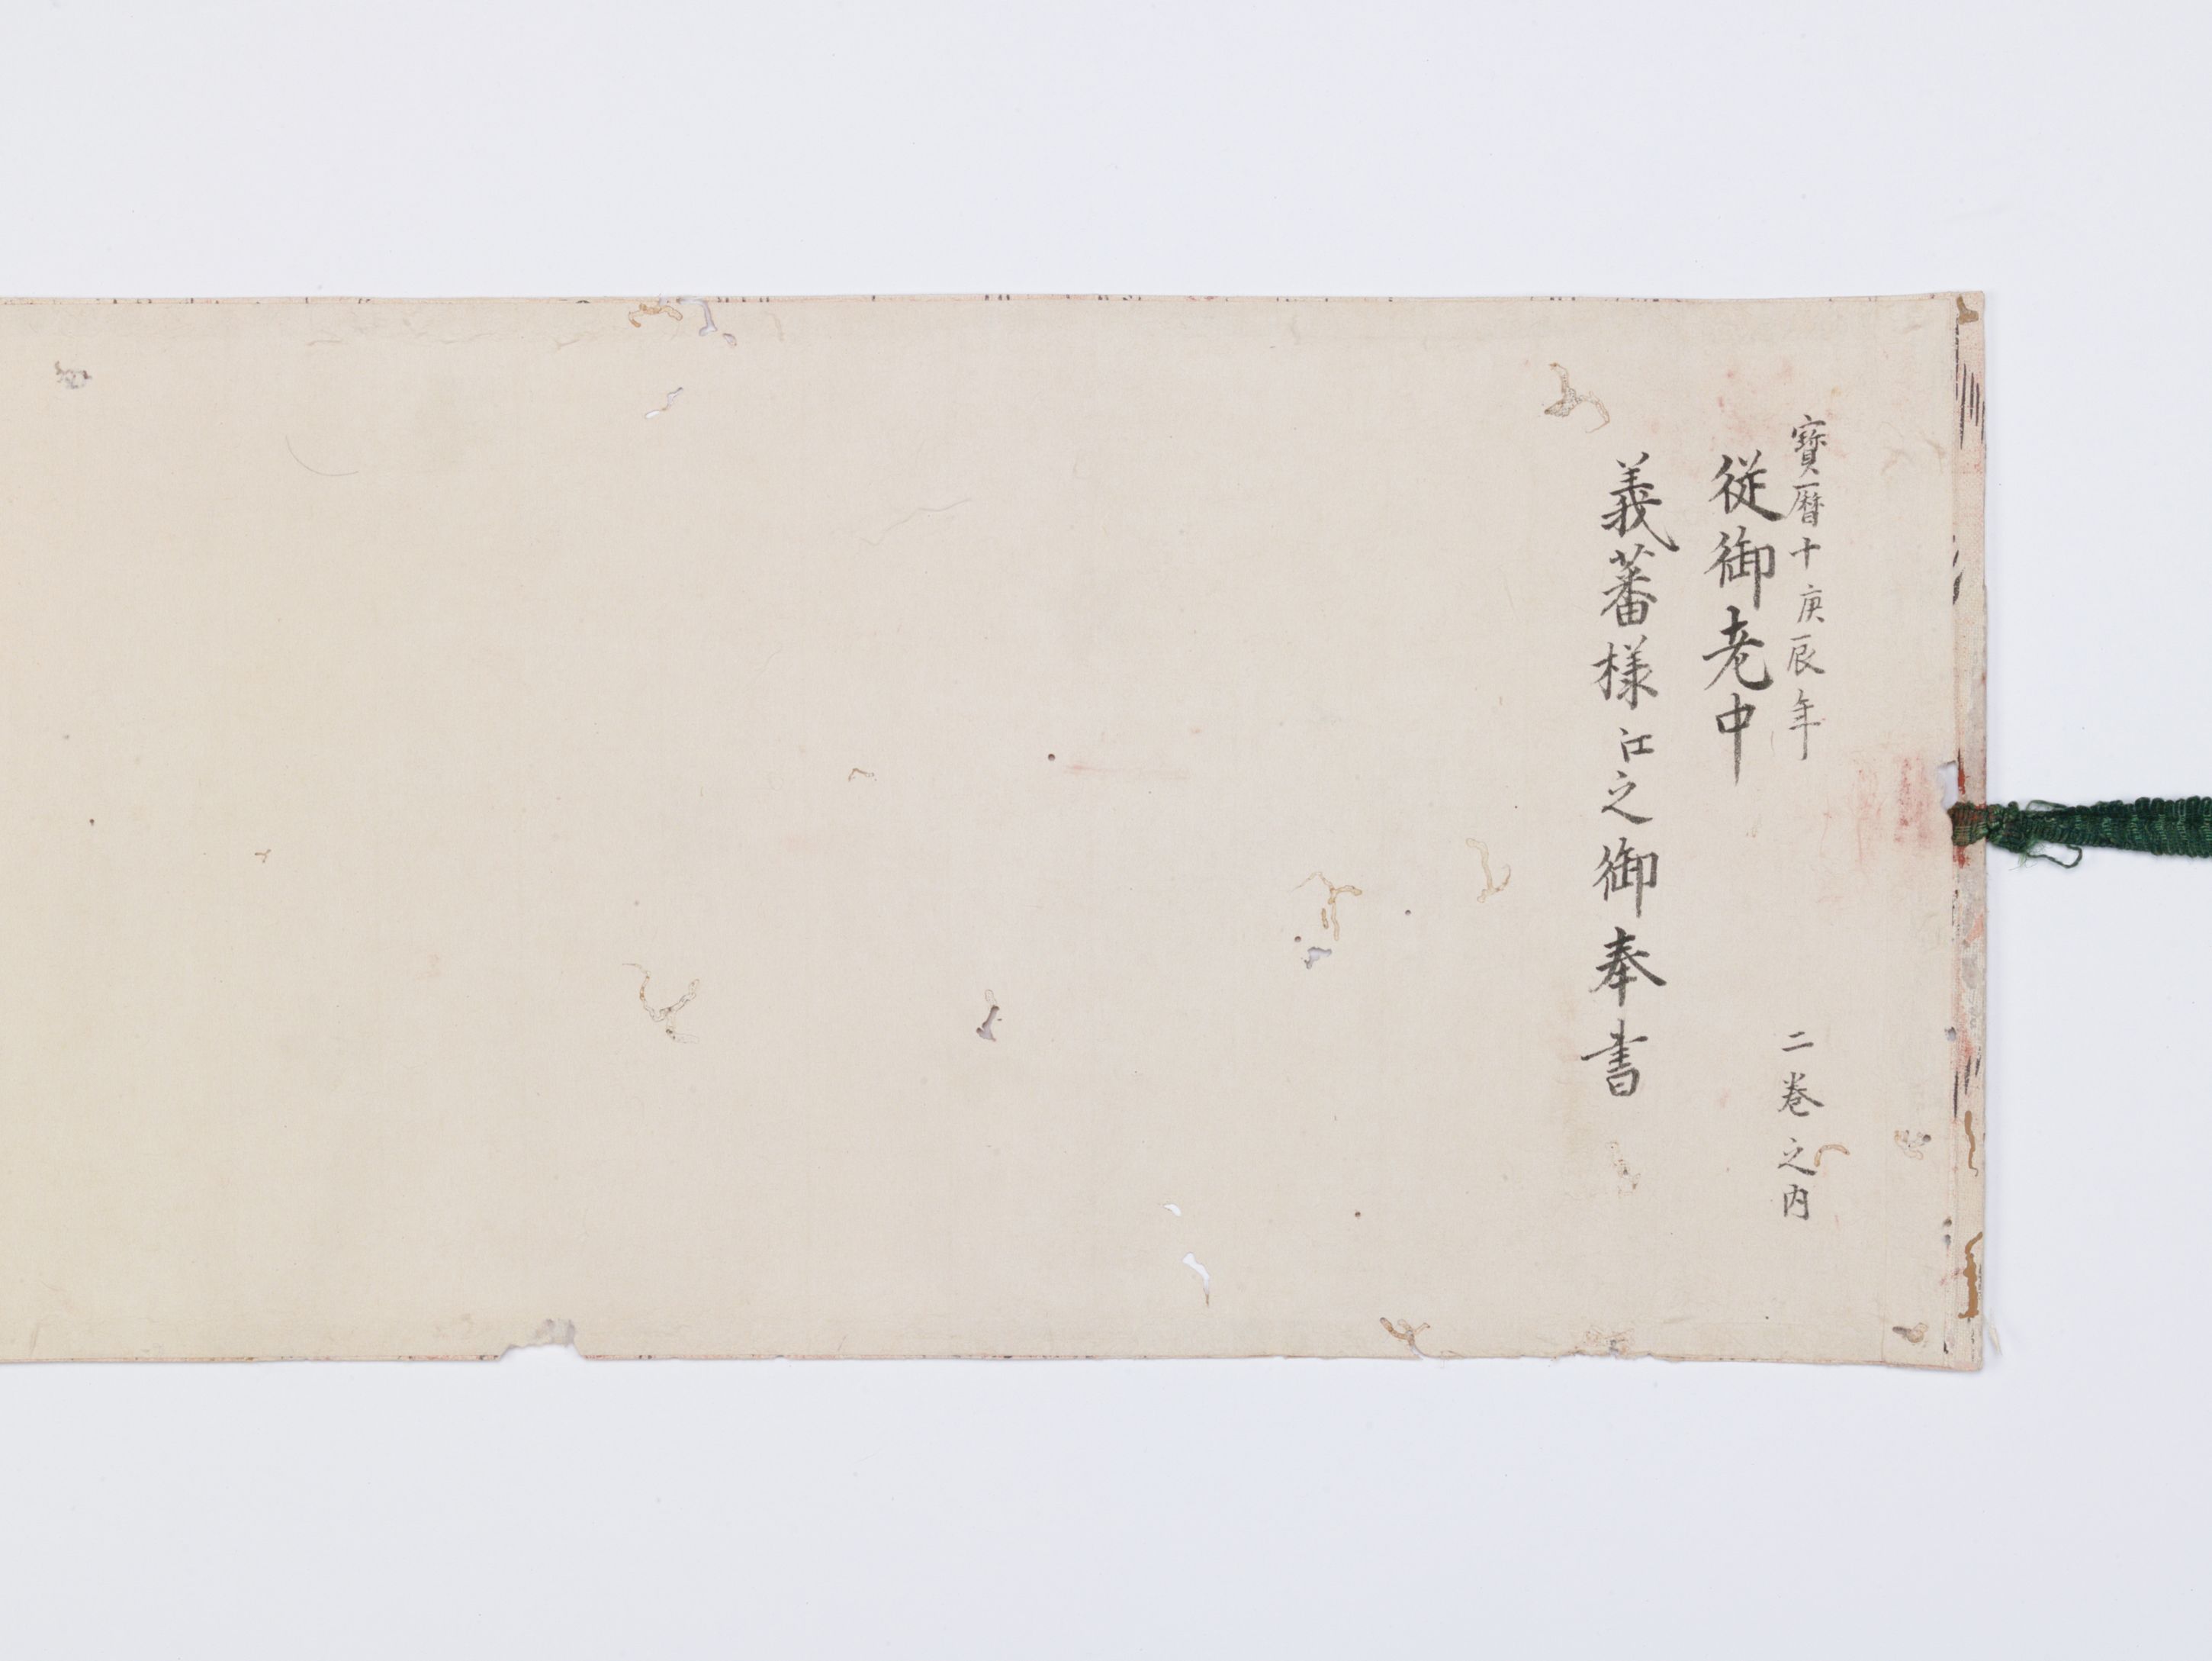 寳暦十庚辰年
二巻之内
従御老中
義蕃様江之御奉書